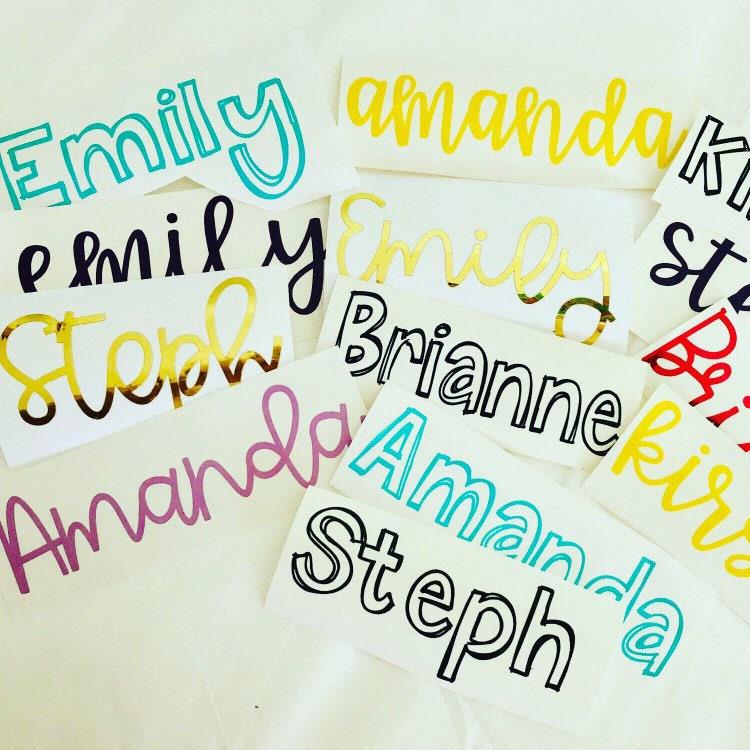 Emily
amanda
emily
Emily
Steph
Brianne
Amanda
Amanda
Steph